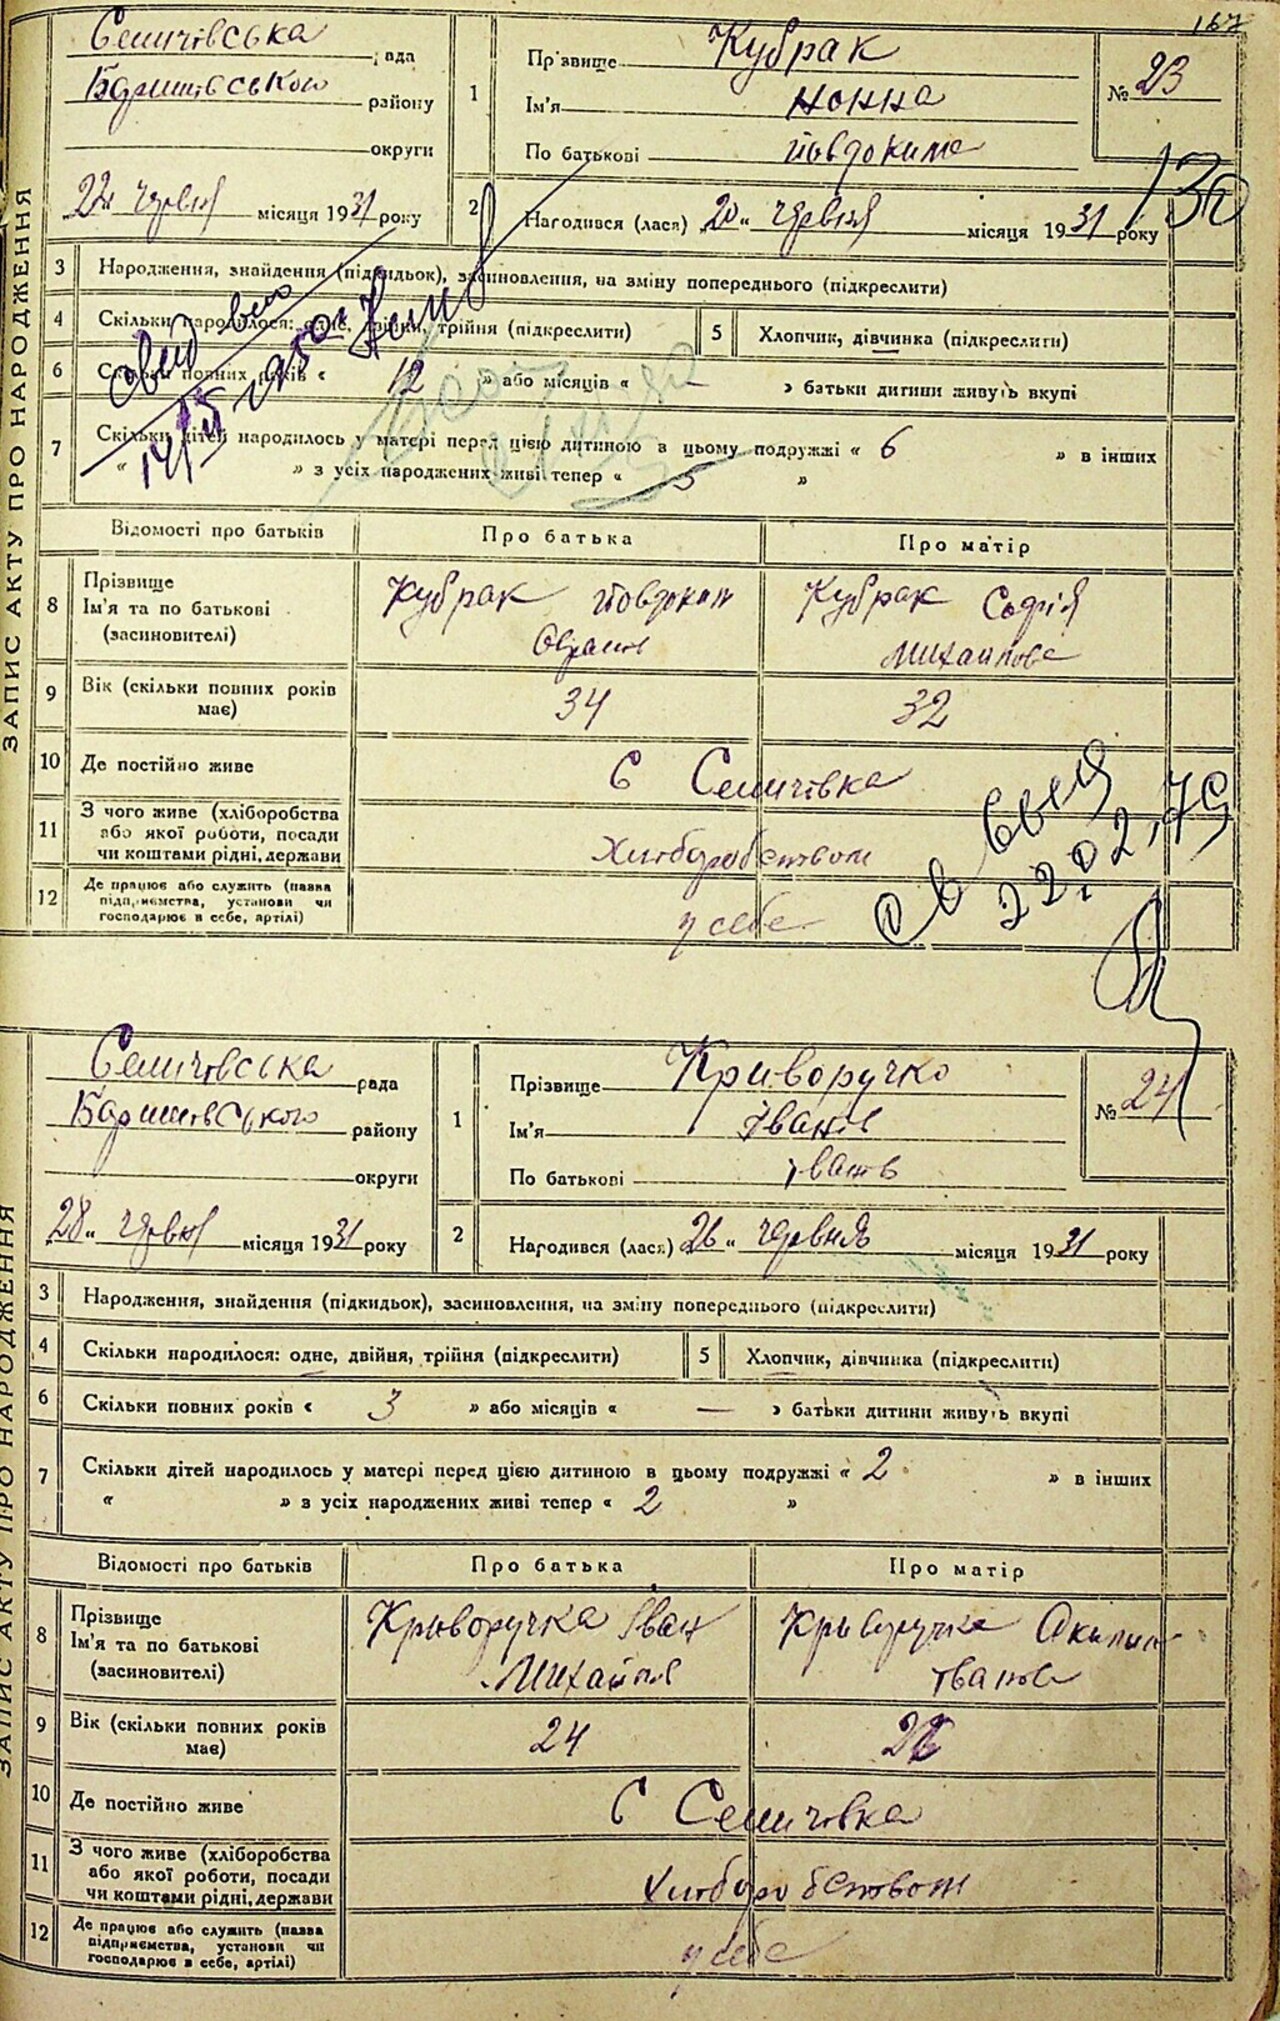 167
ЗАПИС АКТУ ПРО НАРОДЖЕННЯ
Селичівська рада
Баришівського району
округи
22 " червня місяця 1931 року
1 Прізвище Кубрак
Ім'я Нонна
По батькові Йовдокимо
№ 23
2 Народився (лася) 20 " червня місяця 1931 року
3 Народження, знайдення (підкидьок), засиновлення, на зміну попереднього (підкреслити)
4 Скільки народилося: одне, двійня, трійня (підкреслити) 5 Хлопчик, дівчинка (підкреслити)
6 Скільки повних років « 12 » або місяців « » батьки дитини живуть вкупі
7 Скільки дітей народилось у матері перед цією дитиною в цьому подружжі « 6 » в інших
« » з усіх народжених живі тепер « 5 »
Відомості про батьків Про батька Про матір
8 Прізвище Ім'я та по батькові (засиновителі) Кубрак Йовдоким Кубрак Софія
Михайлова
9 Вік (скільки повних років має) 34 32
10 Де постійно живе С Селичівка
11 З чого живе (хліборобства або якої роботи, посади чи коштами рідні, держави Хліборобством
12 Де працює або служить (назва підприємства, установи чи господарює в себе, артілі) у себе
22.02.75
ЗАПИС АКТУ ПРО НАРОДЖЕННЯ
Селичівська рада
Баришівського району
округи
28 " червня місяця 1931 року
1 Прізвище Криворучко
Ім'я Іванів
По батькові Іванів
№ 24
2 Народився (лася) 26 " червня місяця 1931 року
3 Народження, знайдення (підкидьок), засиновлення, на зміну попереднього (підкреслити)
4 Скільки народилося: одне, двійня, трійня (підкреслити) 5 Хлопчик, дівчинка (підкреслити)
6 Скільки повних років « 3 » або місяців « — » батьки дитини живуть вкупі
7 Скільки дітей народилось у матері перед цією дитиною в цьому подружжі « 2 » в інших
« » з усіх народжених живі тепер « 2 »
Відомості про батьків Про батька Про матір
8 Прізвище Ім'я та по батькові (засиновителі) Криворучка Іван Криворучка Акилин
Михайлів Іванова
9 Вік (скільки повних років має) 24
10 Де постійно живе С Селичівка
11 З чого живе (хліборобства або якої роботи, посади чи коштами рідні, держави Хліборобством
12 Де працює або служить (назва підприємства, установи чи господарює в себе, артілі) у себе